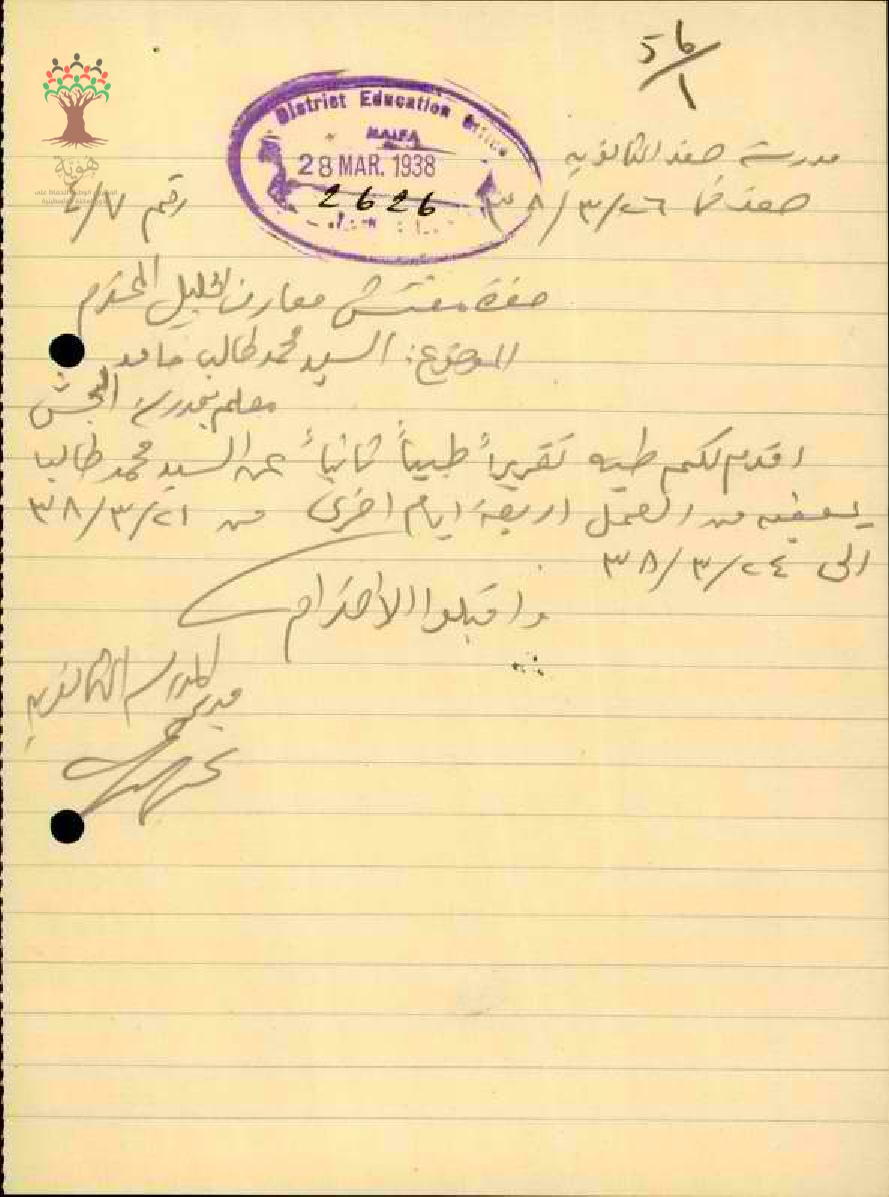 56/1
District Education Office
HAIFA
28 MAR. 1938
2626
مدرسة صفد الثانويه
صفد في ٢٦/٣/٣٨
رقم ٤/٧
حضرة مفتش معارف الجليل المحترم
الموضوع: السيد محمد طالب حامد
معلم بمدرسة الجش
اقدم لكم طيه تقريراً طبياً ثانياً عن السيد محمد طالب
يعفيه من العمل اربعة ايام اخرى من ٢١/٣/٣٨
الى ٢٤/٣/٣٨
واقبلوا الاحترام
مدير
المدرسة الثانويه
هوية